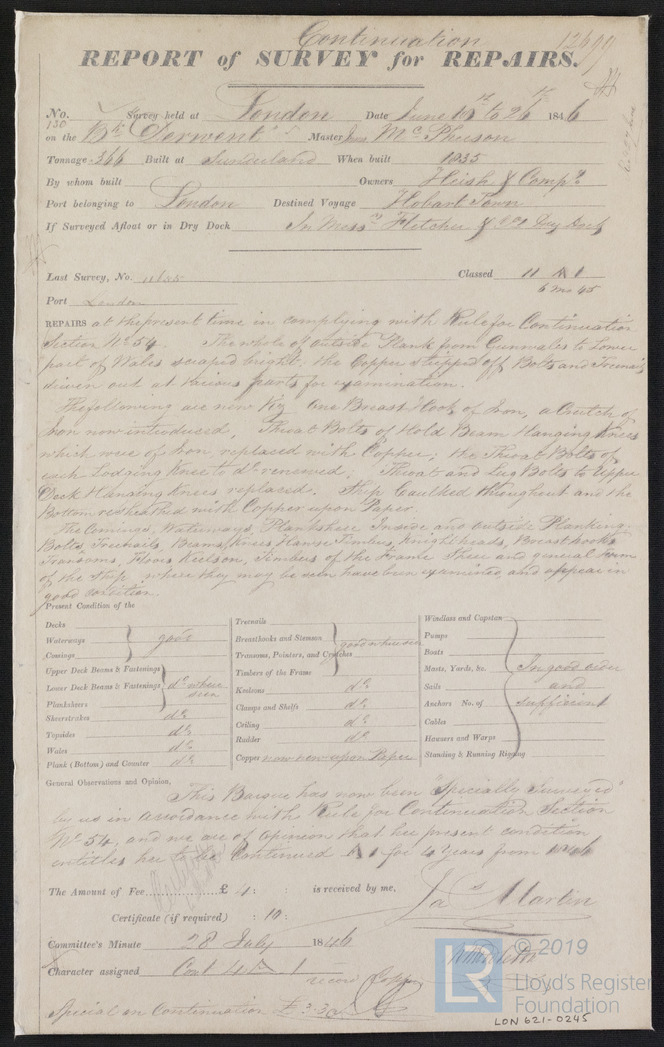 Continuation
12699
REPORT of SURVEY for REPAIRS.
No. 130 Survey held at London Date June to 26th 1846
on the Bk "Derwent" Master Mc Pherson
Tonnage 366 Built at Sunderland When built 1835
By whom built Owners & Compy.
Port belonging to London Destined Voyage Hobart Town
If Surveyed Afloat or in Dry Dock In Messrs Fletcher & Dry Dock
Last Survey, No. 11635 Classed 11 A 1
Port London 6 mo 45
REPAIRS at the present time in complying with Rule for Continuation
Section No 54. The whole of outside Plank from Gunwales to Lower
part of Wales scraped bright, the Copper stripped off, Bolts and Treenails
driven out at various parts for examination.
The following are new Viz. One Breast Hook of Iron, a Crutch of
Iron now introduced, Throat Bolts of Hold Beam Hanging Knees
which were of Iron, replaced with Copper; the Throat Bolts of
each Lodging Knee to do renewed. Throat and Lug Bolts to Upper
Deck Hanging Knees replaced. Ship Caulked throughout and the
Bottom resheathed with Copper upon Paper.
The Comings, Waterways, Plankshere Inside and outside Planking,
Bolts, Treenails, Beams, Knees, Hawse Timbers, Knightheads, Breasthooks
Transoms, Floors Keelson, Timbers of the Frame Sheer and general Form
of the Ship, where they may be seen have been examined, and appear in
good condition.
Present Condition of the
Decks
Waterways good
Comings
Upper Deck Beams & Fastenings
Lower Deck Beams & Fastenings do where seen
Plankshears
Sheerstrakes do
Topsides do
Wales do
Plank (Bottom) and Counter do
Treenails
Breasthooks and Stemson good where seen
Transoms, Pointers, and Crutches
Timbers of the Frame
Keelsons do
Clamps and Shelfs do
Ceiling do
Rudder do
Copper now new upon Paper
Windlass and Capstan
Pumps
Boats
Masts, Yards, &c. In good order
Sails and
Anchors No. of sufficient
Cables
Hawsers and Warps
Standing & Running Rigging
General Observations and Opinion,
This Barque has now been "Specially Surveyed"
by us in accordance with Rule for Continuation Section
No 54, and we are of opinion that her present condition
entitles her to be Continued A 1 for 4 Years from 1846
The Amount of Fee £ 4 : : is received by me,
Jas Martin
Certificate (if required) : 10 :
Committee's Minute 28 July 1846
Character assigned Cont 4 A 1
Special on Continuation £3 : 3
© 2019
LR
Lloyd's Register
Foundation
LON 621-0245